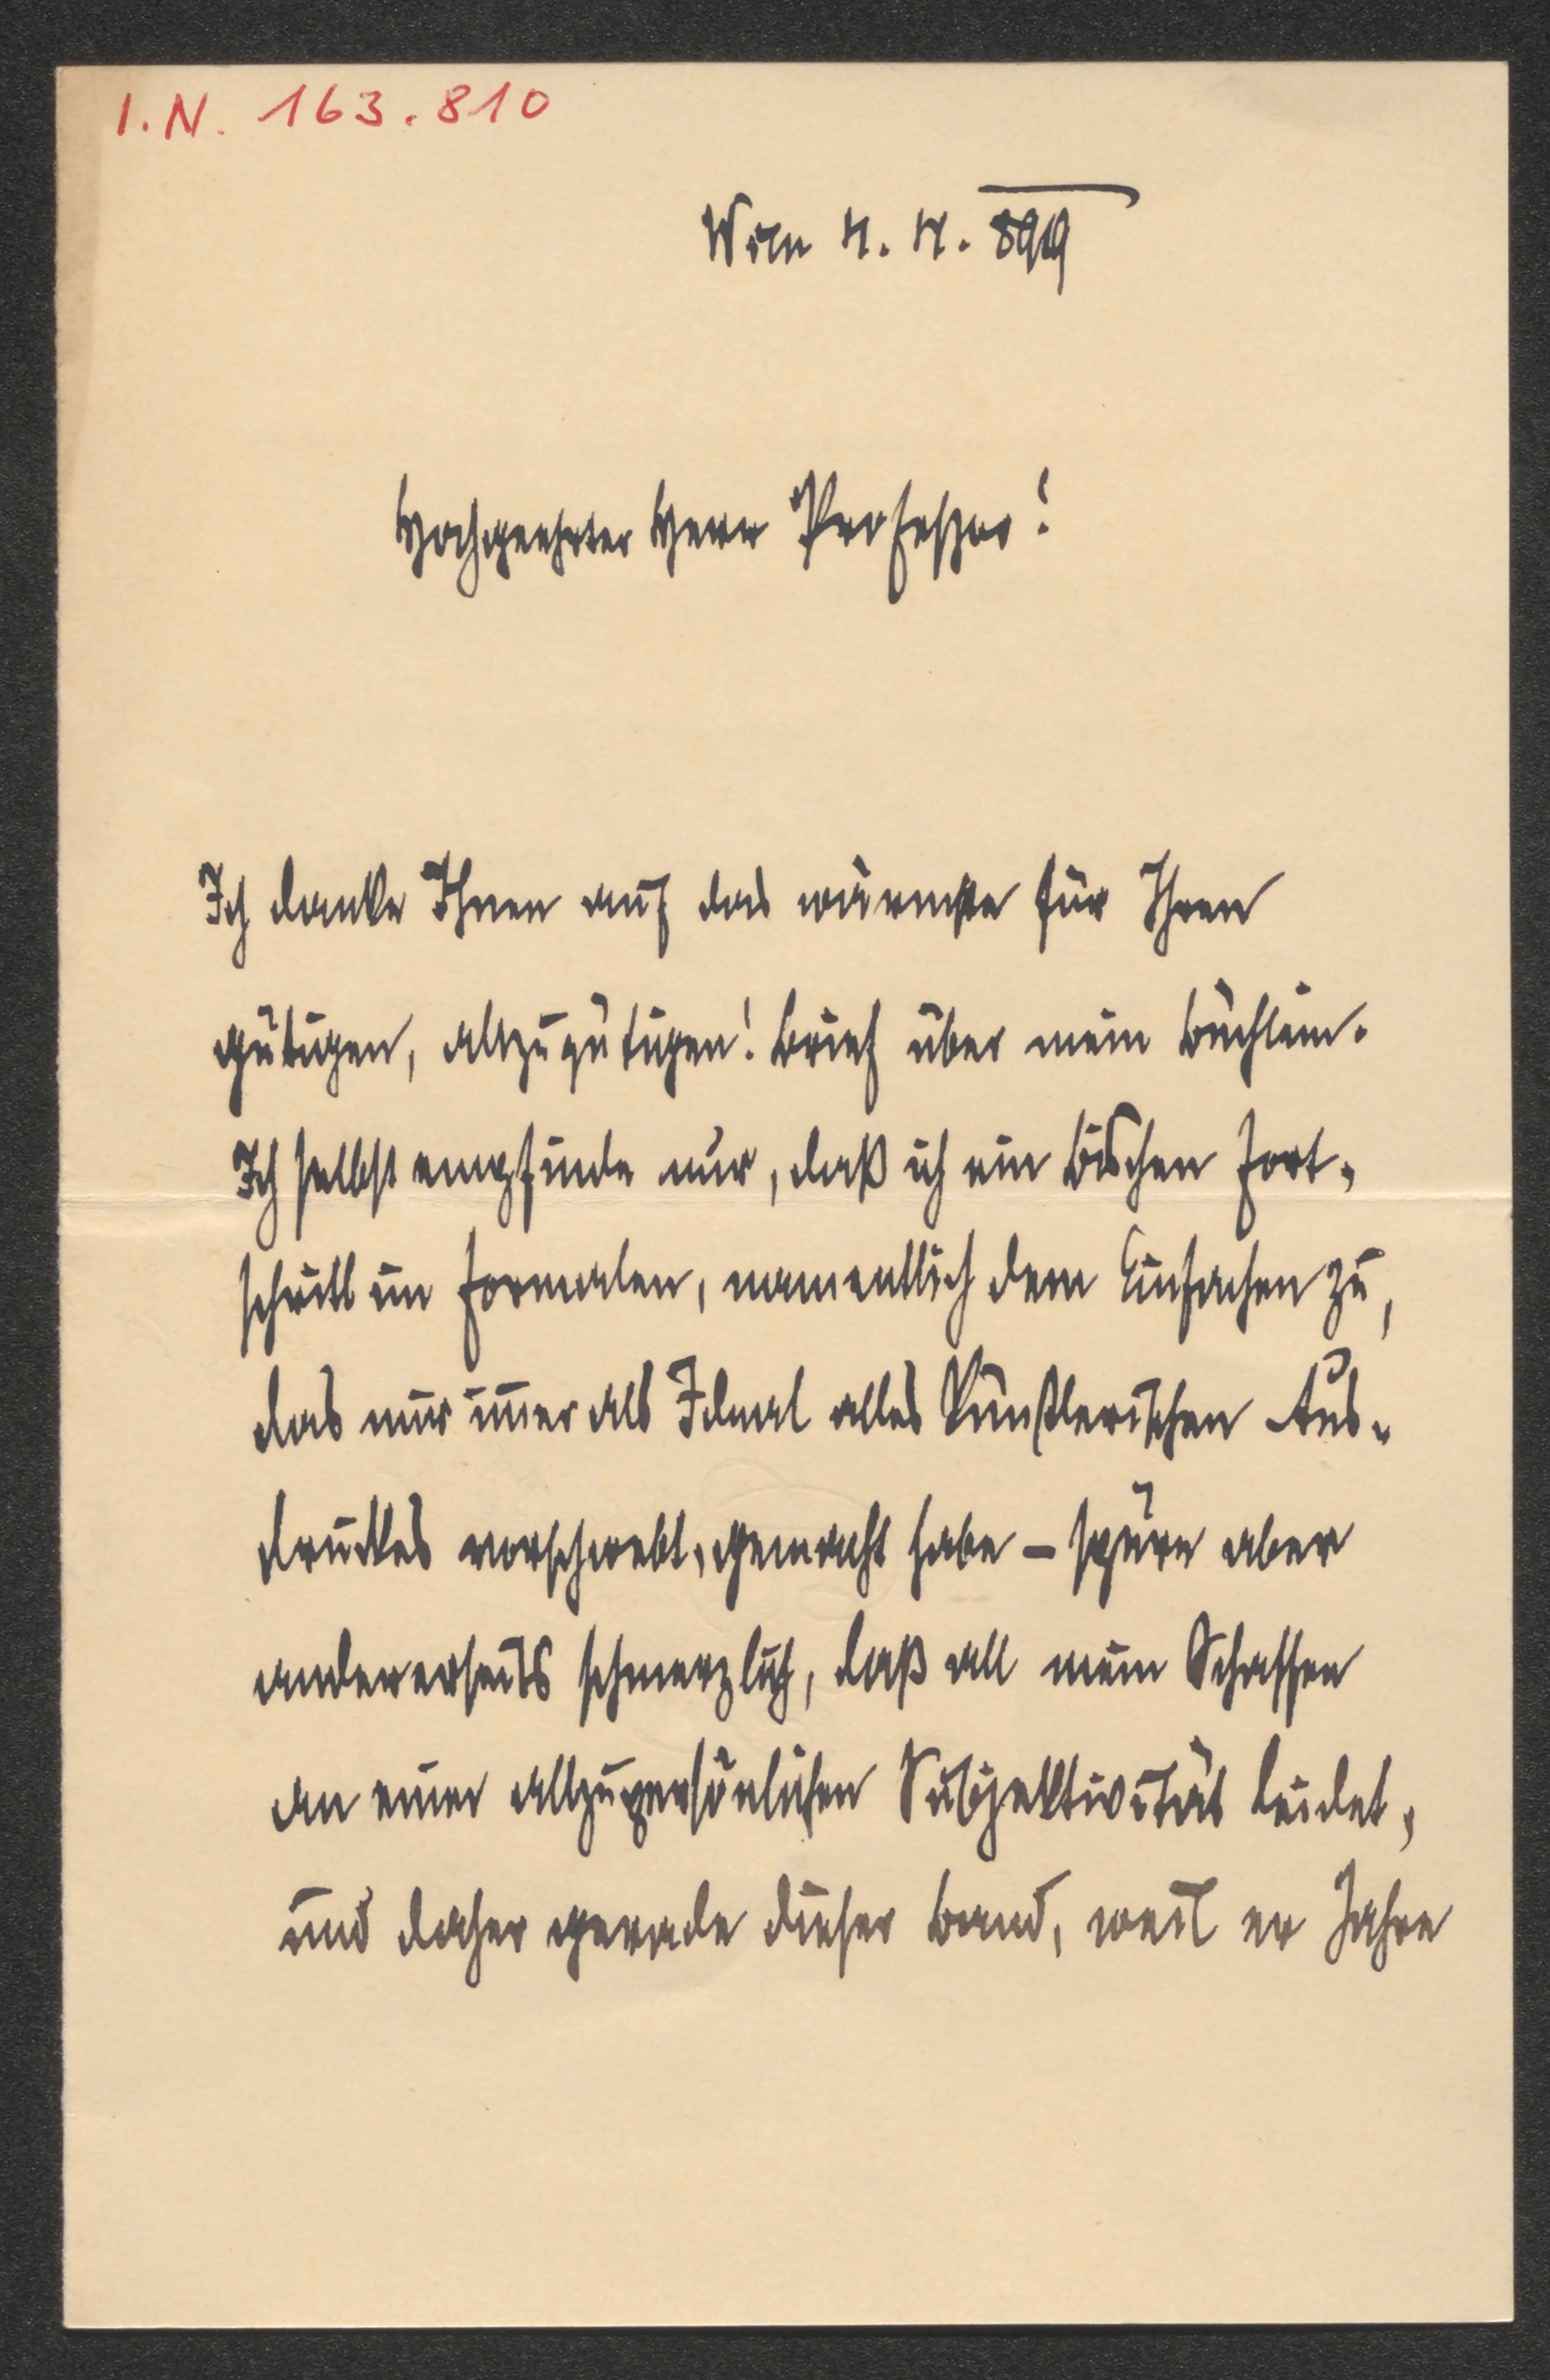 I.N. 163.810
Wien 4. 4. 899
Hochgeehrter Herr Professor!
Ich danke Ihnen auf das wärmste für Ihren
gütigen, allzugütigen! Brief über mein Büchlein.
Ich selbst empfinde nur, daß ich ein bischen Fort-
schritt im Formalen, namentlich dem Einfachen zu,
das mir im̄er als Ideal alles Künstlerischen Aus-
druckes vorschwebt, gemacht habe – spüre aber
andererseits schmerzlich, daß all mein Schaffen
an einer allzupersönlichen Subjektivität leidet,
und daher gerade dieser Band, weil er Jahre